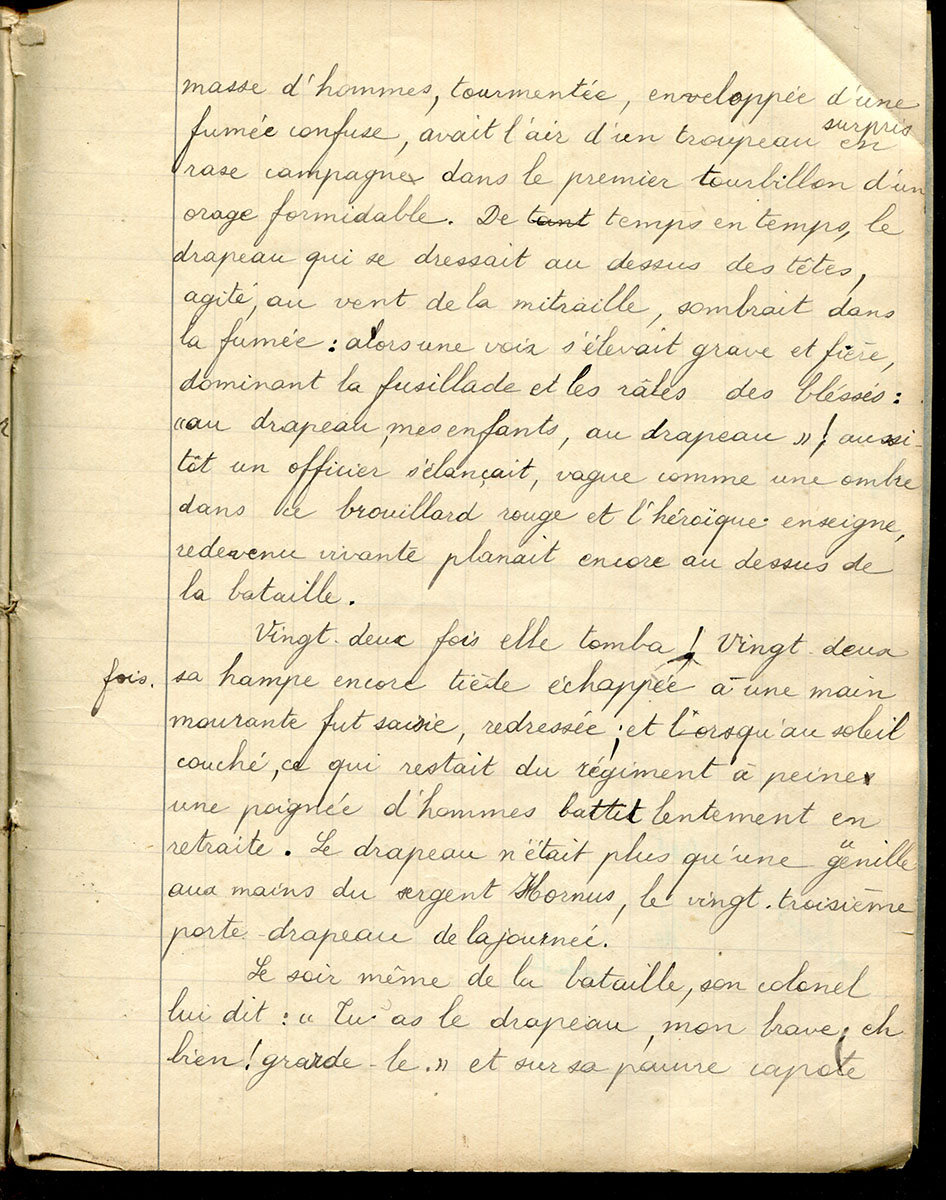 masse d'hommes, tourmentée, enveloppée d'une
fumée confuse, avait l'air d'un troupeau surpris en
rase campagne dans le premier tourbillon d'un
orage formidable. De tant temps en temps, le
drapeau qui se dressait au dessus des têtes,
agité, au vent de la mitraille, sombrait dans
la fumée : alors une voix s'élevait grave et fière,
dominant la fusillade et les râles des bléssés :
"au drapeau, mes enfants, au drapeau" ! aussi-
tôt un officier s'élançait, vague comme une ombre
dans ce brouillard rouge et l'héroïque enseigne,
redevenu vivante planait encore au dessus de
la bataille.
Vingt-deux fois elle tomba ! Vingt-deux
fois. sa hampe encore tiède échappée à une main
mourante fut saisie, redressée ; et lorsqu'au soleil
couché, ce qui restait du régiment à peine
une poignée d'hommes battit lentement en
retraite. Le drapeau n'était plus qu'une guenille
aux mains du sergent Hornus, le vingt-troisième
porte-drapeau de la journée.
Le soir même de la bataille, son colonel
lui dit : "Tu as le drapeau, mon brave ; eh
bien ! garde-le." et sur sa pauvre capote